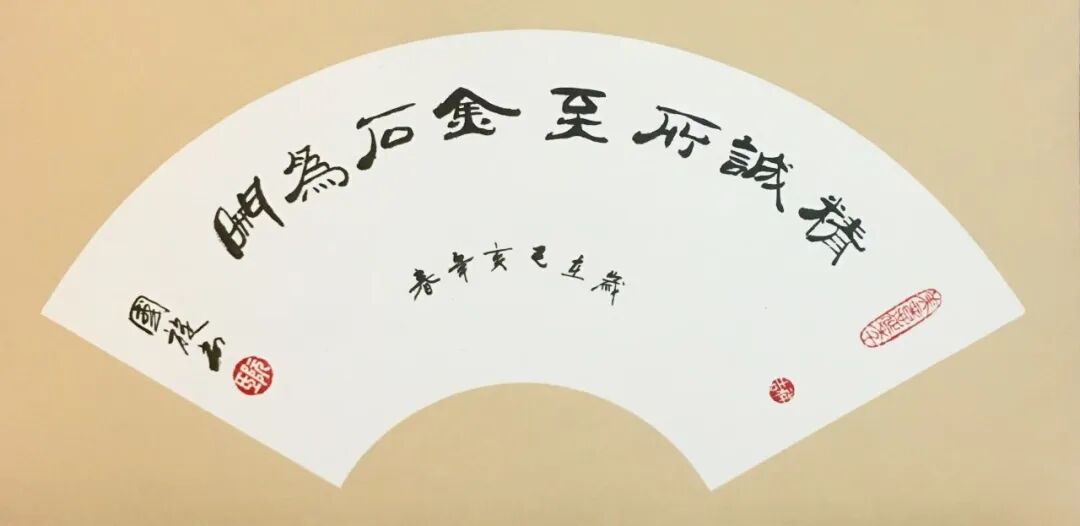 精誠所至金石為開
歲在己亥年春
國